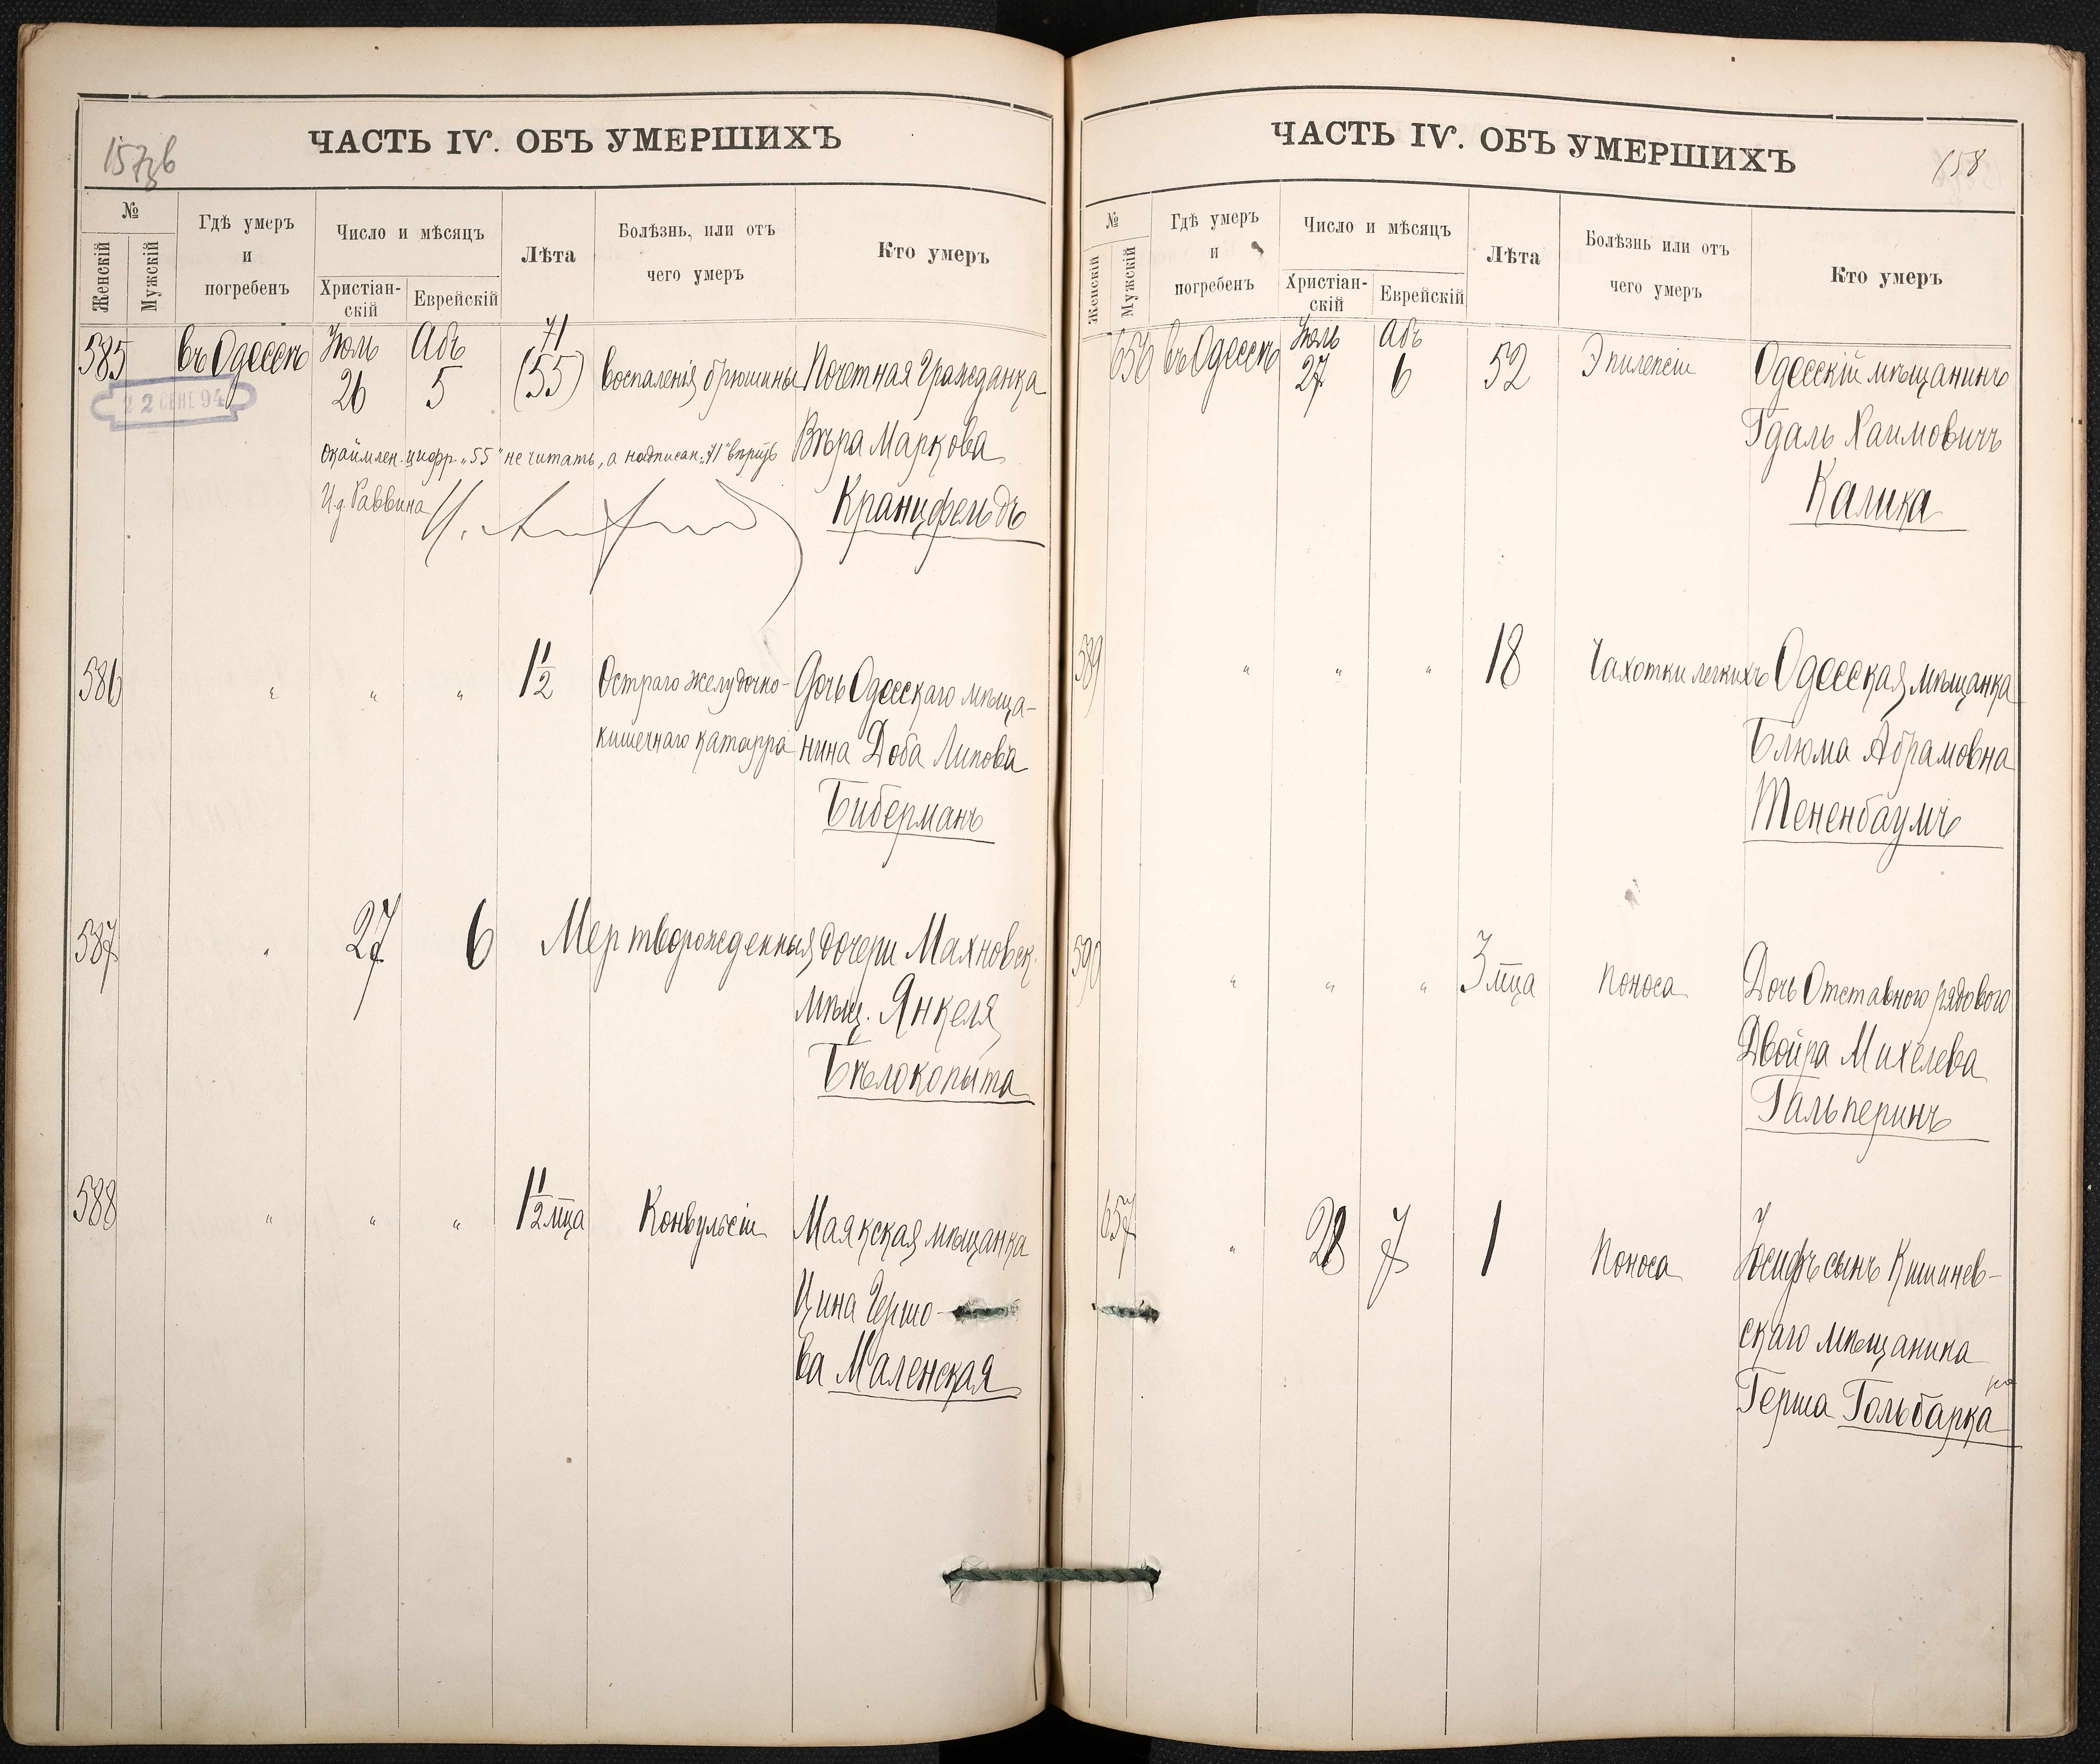 157 об
ЧАСТЬ IV. ОБЪ УМЕРШИХЪ
№
Женскій
Мужскій
Гдѣ умеръ
и
погребенъ
Число и мѣсяцъ
Христіан-
скій
Еврейскій
Лѣта
Болѣзнь, или отъ
чего умеръ
Кто умеръ
585 въ Одессѣ Іюль 26 Абъ 5 71 (55) воспаленія брюшины Почетная Гражданка
22 СЕНТ 94
Вѣра Маркова
Кранцфельдъ
окаймлен. цифр. „55" не читать, а надписан. „71" вѣрить
И. д. Раввина
586 " " " 1 1/2 Остраго желудочно- Дочь Одесскаго мѣща-
кишечнаго катарра нина Доба Липова
Биберманъ
587 " 27 6 Мертворожденныя дочери Махновск.
мѣщ. Янкеля
Бѣлокопыта
588 " " " 1 1/2 мца Конвульсіи Маякская мѣщанка
Цина Гершо-
ва Маленская
ЧАСТЬ IV. ОБЪ УМЕРШИХЪ
158
№
Женскій
Мужскій
Гдѣ умеръ
и
погребенъ
Число и мѣсяцъ
Христіан-
скій
Еврейскій
Лѣта
Болѣзнь или отъ
чего умеръ
Кто умеръ
656 въ Одессѣ Іюль 27 Абъ 6 52 Эпилепсіи Одесскій мѣщанинъ
Гдаль Хаимовичъ
Калика
589 " " " 18 Чахотки легкихъ Одесская мѣщанка
Блюма Абрамовна
Тененбаумъ
590 " " " 3 мца Поноса Дочь Отставного рядового
Двойра Михелева
Гальперинъ
657 " 28 7 1 Поноса Іосифъ сынъ Кишинев-
скаго мѣщанина
Герша Гольбарка